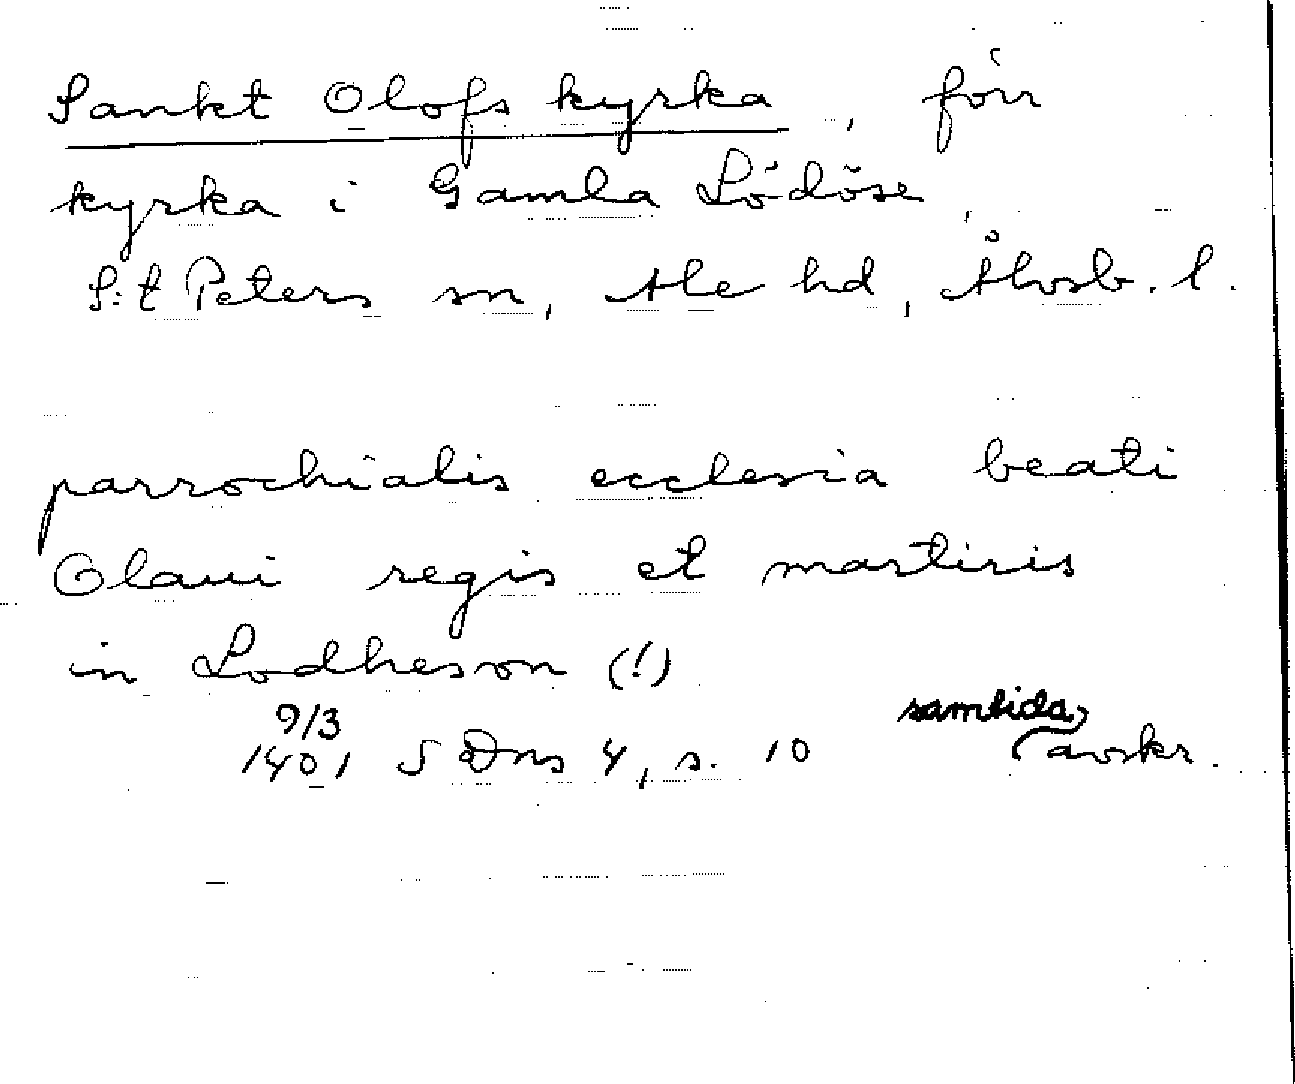 Sankt Olofs kyrka, förr
kyrka i Gamla Lödöse,
S:t Peters sn, Ale hd, Älvsb. l.
parrochialis ecclesia beati
Olaui regis et martiris
in Lodheson (!)
9/3
1401 SDns 4, s. 10 samtida avskr.